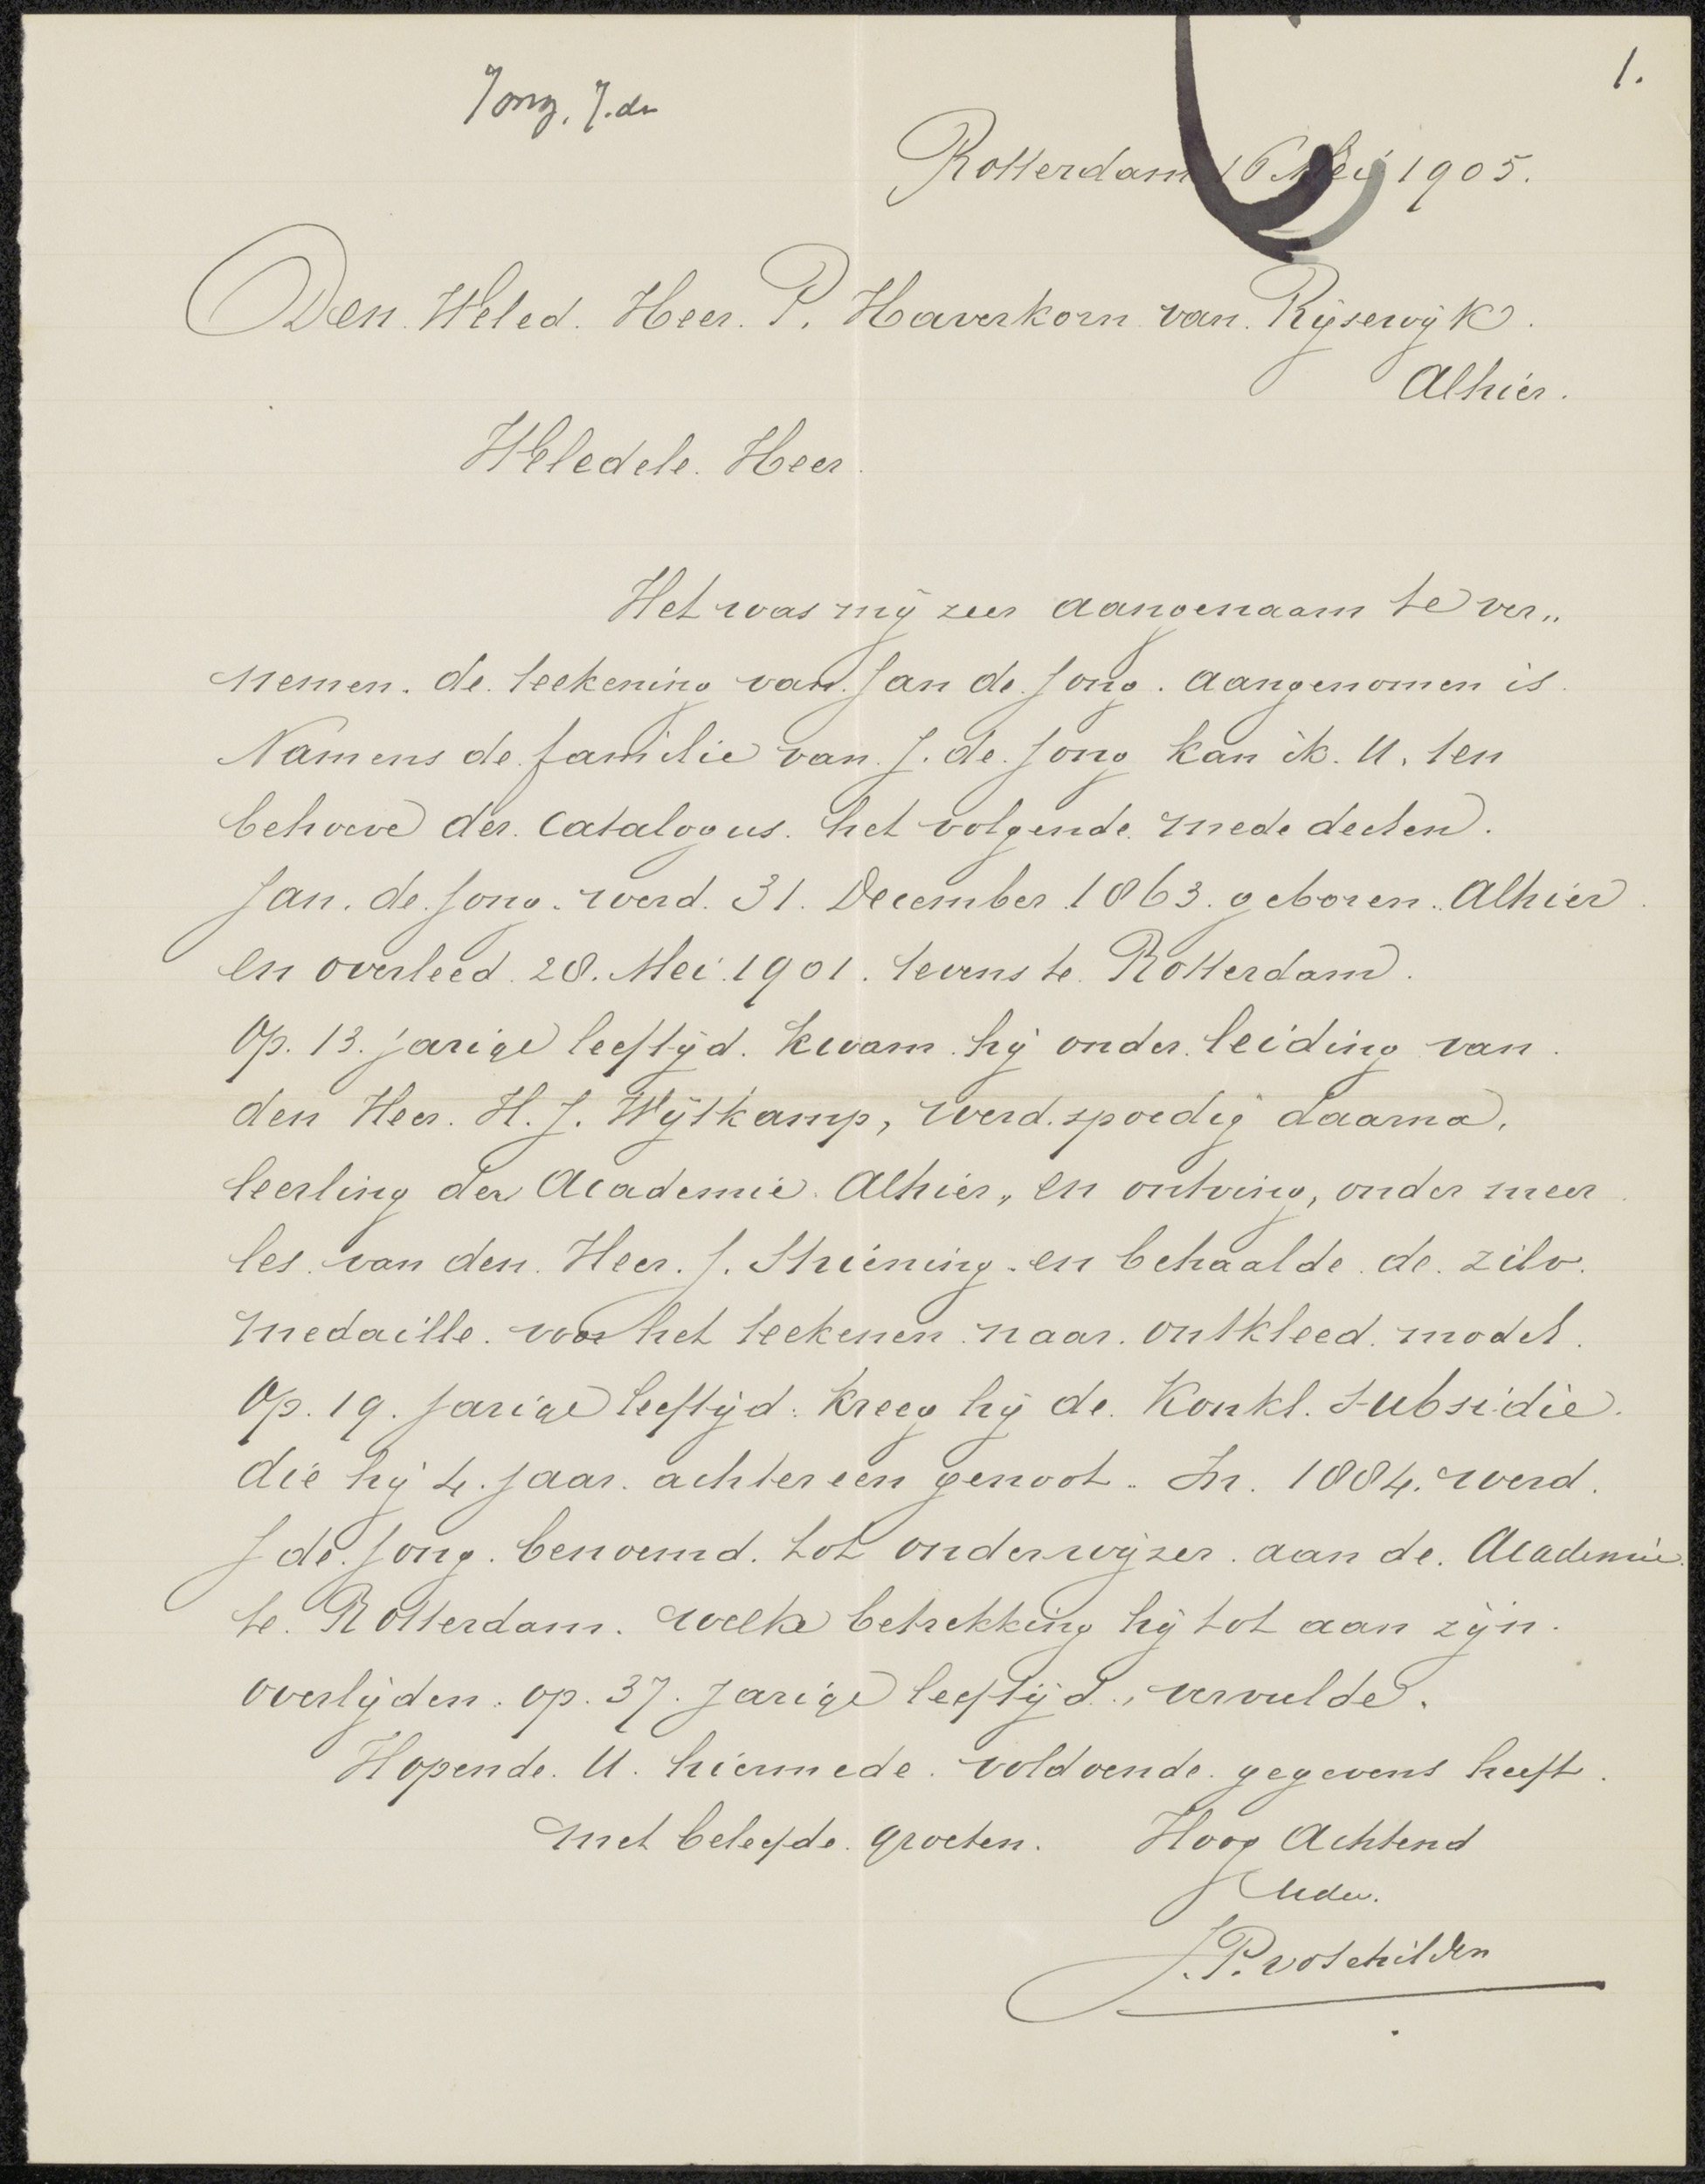 Jong, J. de
1.
Rotterdam 16 Mei 1905.
Den. Weled. Heer. P. Haverkorn van. Rijsewijk.
Alhier.
Weledele. Heer.
Het was mij zeer aangenaam te ver„
nemen. de teekening van. Jan de Jong. aangenomen is.
Namens de familie van. J. de. Jong kan ik. U. ten
behoeve der. Catalogus. het volgende. mede deelen.
Jan. de Jong. werd. 31. December 1863. geboren. Alhier.
en overleed. 28. Mei. 1901. tevens te. Rotterdam.
Op. 13. jarige leeftijd. kwam. hij onder. leiding van.
den Heer. H. J. Wijtkamp, werd. spoedig daarna.
leerling der Academie. Alhier„ en ontving, onder meer.
les. van den. Heer. J. Striening. en behaalde. de. zilv.
medaille. voor het teekenen naar. ontkleed. model.
Op. 19. Jarige leeftijd. kreeg hij de. Konkl. Subsidie.
die hij 4. Jaar. achtereen genoot. In. 1884. werd.
J de. Jong. benoemd. tot onderwijzer. aan de. Academie.
te. Rotterdam. welke betrekking hij tot aan zijn.
overlijden. op. 37. Jarige leeftijd., vervulde.
Hopende. U. hiermede. voldoende. gegevens heeft.
met beleefde. groeten. Hoog Achtend
J. P. v o Schilden